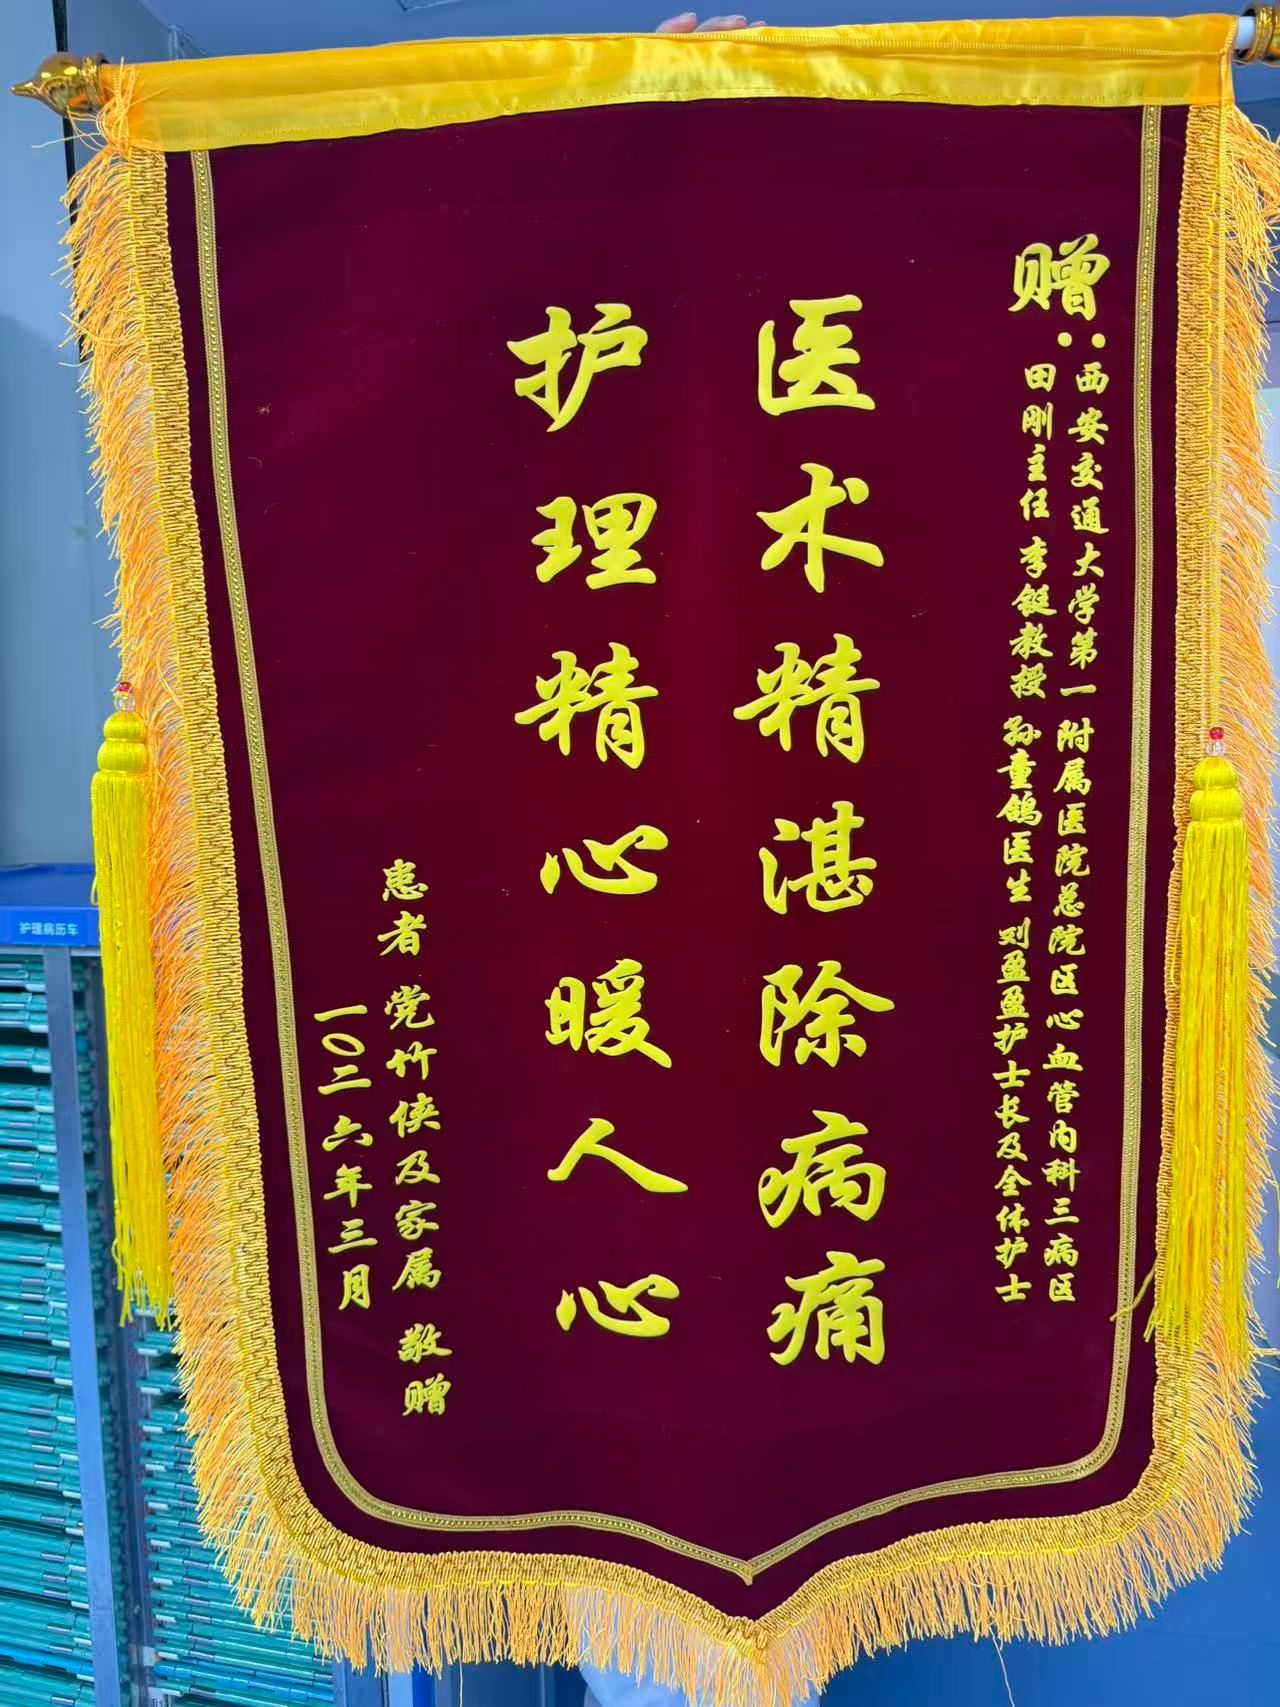 赠：西安交通大学第一附属医院总院区心血管内科三病区
田刚主任 李铤教授 孙童鸽医生 刘盈盈护士长及全体护士
医术精湛除病痛
护理精心暖人心
患者 党竹侠及家属 敬赠
一〇二六年三月
护理病历车